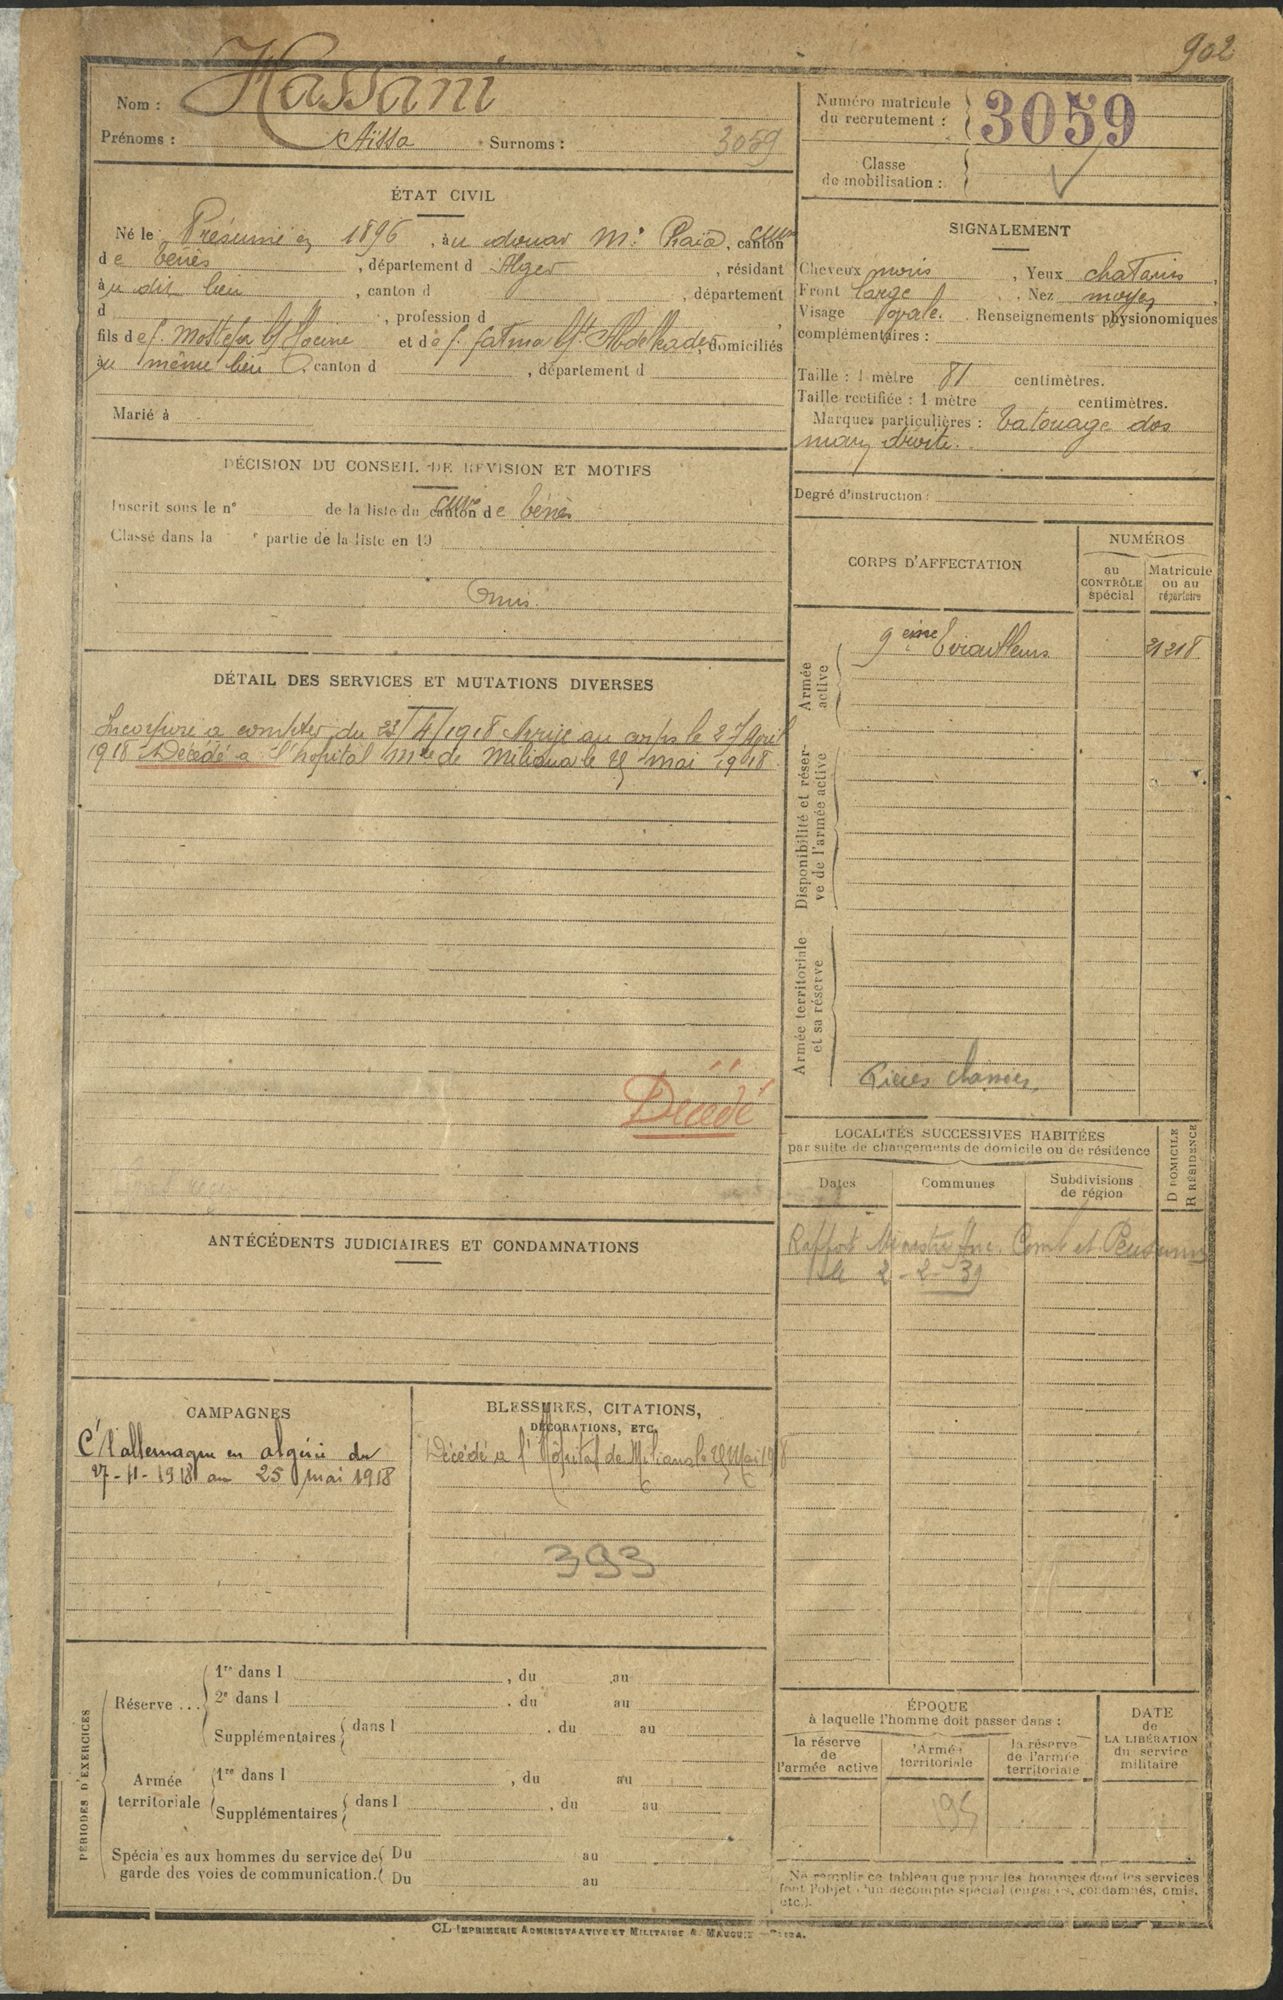 902
Nom : Hassani
Prénoms : Aïssa Surnoms : 3059
Numéro matricule
du recrutement : 3059
Classe
de mobilisation :
ÉTAT CIVIL
Né le Présumé en 1896, au douar M' , canton
de Ténès, département d Alger, résidant
au dit lieu, canton d , département
d , profession d
fils de f. et de f. Fatma Abdelkader, domiciliés
au même lieu canton d , département d
Marié à
SIGNALEMENT
Cheveux noirs, Yeux chatains,
Front large. Nez moyen,
Visage ovale. Renseignements physionomiques
complémentaires :
Taille : 1 mètre 81 centimètres.
Taille rectifiée : 1 mètre centimètres.
Marques particulières : Tatouage dos
main droite.
Degré d'instruction :
DÉCISION DU CONSEIL DE REVISION ET MOTIFS
Inscrit sous le n° de la liste du canton de Ténès
Classé dans la e partie de la liste en 19
Omis.
CORPS D'AFFECTATION
NUMÉROS
au
CONTRÔLE
spécial
Matricule
ou au
répertoire
Armée
active
9 eme Tirailleurs 21218
Disponibilité et réser-
ve de l'armée active
Armée territoriale
et sa réserve
DÉTAIL DES SERVICES ET MUTATIONS DIVERSES
Incorporé a compter du 23/4/1918 Arrivé au corps le 27 Avril
1918 Décédé a l'hopital Mre de Miliana le 25 mai 1918.
Décédé
LOCALITÉS SUCCESSIVES HABITÉES
par suite de changements de domicile ou de résidence
D DOMICILE
R RÉSIDENCE
Dates
Communes
Subdivisions
de région
Rapport Ministre Anc. Comb et Pensions
le 2-2-39
ANTÉCÉDENTS JUDICIAIRES ET CONDAMNATIONS
CAMPAGNES
C/ l'allemagne en algérie du
27-4-1918 au 25 mai 1918
BLESSURES, CITATIONS,
DÉCORATIONS, ETC.
Décédé a l'Hôpital de Miliana le 25 Mai 1918
393
PÉRIODES D'EXERCICES
Réserve ...
1re dans l , du au
2e dans l , du au
Supplémentaires dans l , du au
Armée
territoriale
1re dans l , du au
Supplémentaires dans l , du au
Spéciales aux hommes du service de
garde des voies de communication.
Du au
Du au
ÉPOQUE
à laquelle l'homme doit passer dans :
la réserve
de
l'armée active
l'Armée
territoriale
la réserve
de l'armée
territoriale
DATE
de
LA LIBÉRATION
du service
militaire
Ne remplir ce tableau que pour les hommes dont les services
font l'objet d'un décompte spécial (engagés, condamnés, omis,
etc.).
CL IMPRIMERIE ADMINISTRATIVE ET MILITAIRE A. MAUGUIN — BLIDA.